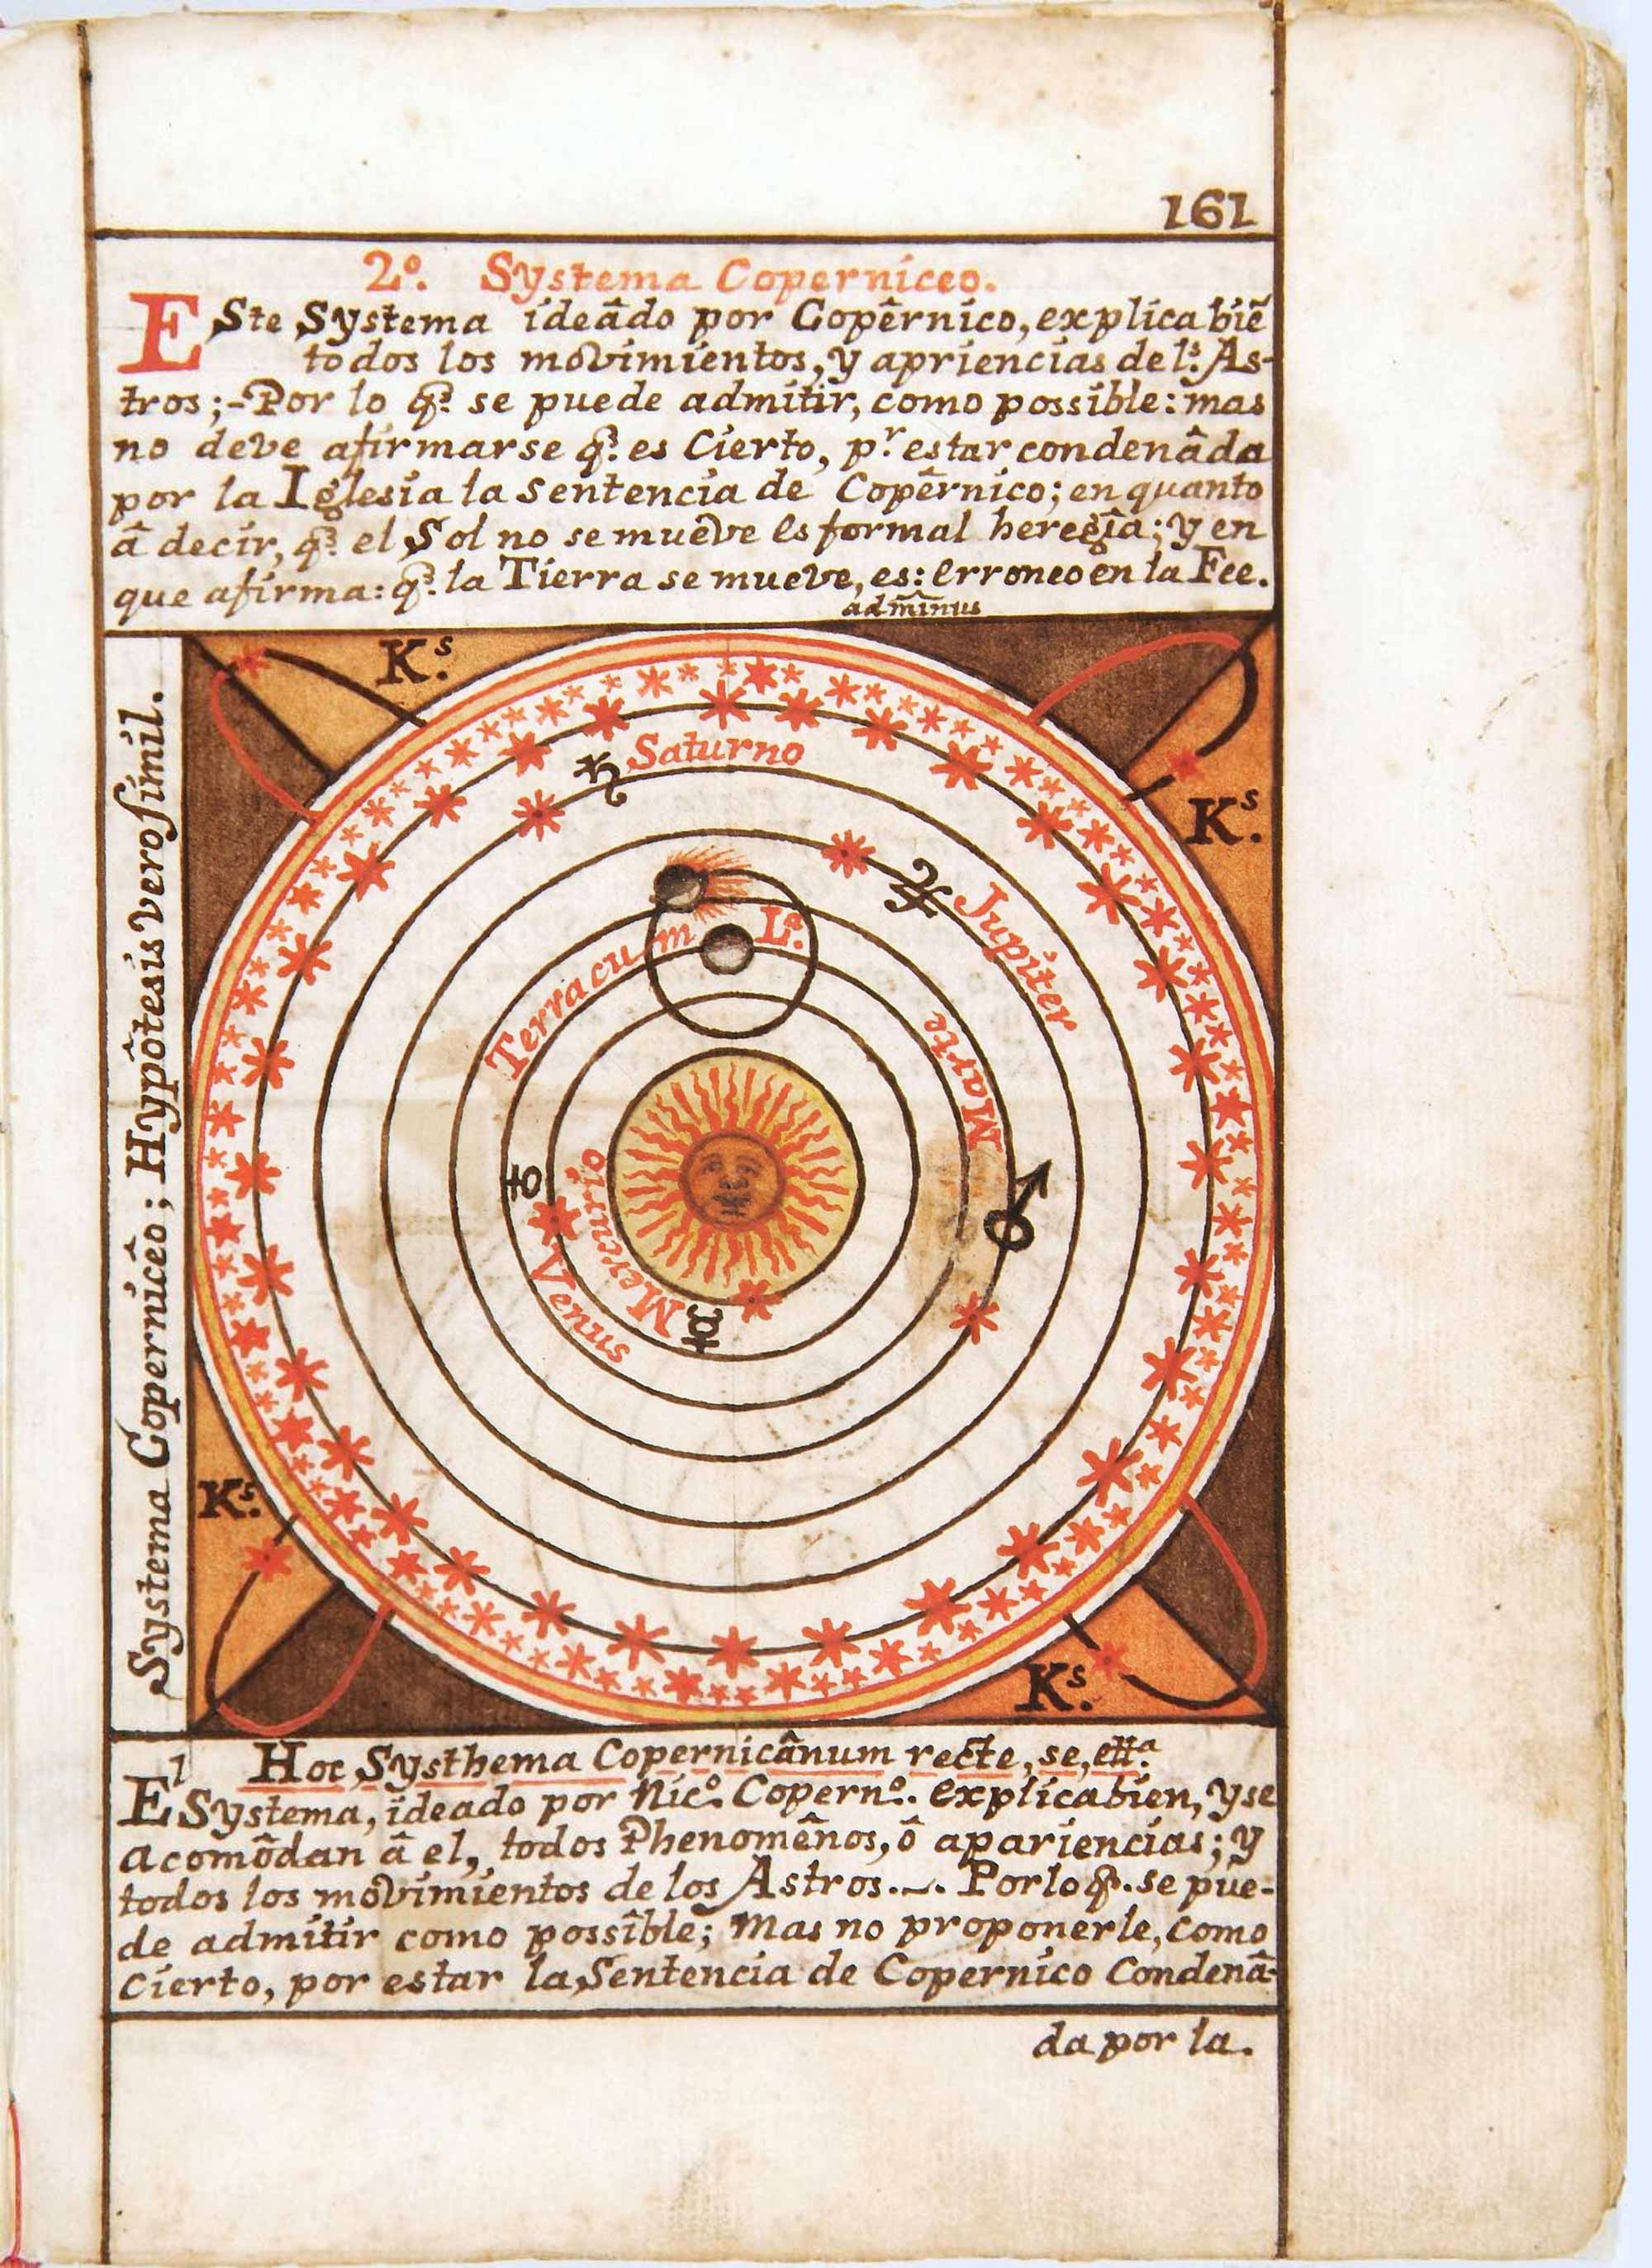 161
2º. Systema Coperniceo.
ESte Systema ideâdo por Copêrnico, explica biẽ
todos los movimientos, y apriencias de lˢ. As-
tros; - Por lo qᵉ. se puede admitir, como possible: mas
no deve afirmarse qᵉ. es Cierto, pʳ. estar condenâda
por la Iglesia la sentencia de Copêrnico; en quanto
â decir, qᵉ. el Sol no se mueve es formal heregîa; y en
que afirma: qᵉ. la Tierra se mueve, es: erroneo en la Fee.
ad mînus
Kˢ.
Kˢ.
Systema Copernicêo; Hypôtesis veroſimil.
♄ Saturno
♃ Jupiter
Terra cum Lª.
Marte ♂
♀
Venus
Mercurio ☿
Kˢ.
Kˢ.
Hoc Systhema Copernicânum recte, se, ettª.
El Systema, ideado por Nicº. Copernº. explica bien, y se
acomôdan â el, todos Phenomênos, ô apariencias; y
todos los movimientos de los Astros.~. Por lo q. se pue-
de admitir como possîble; Mas no proponerle, como
Cierto, por estar la Sentencia de Copernico Condenâ-
da por la.